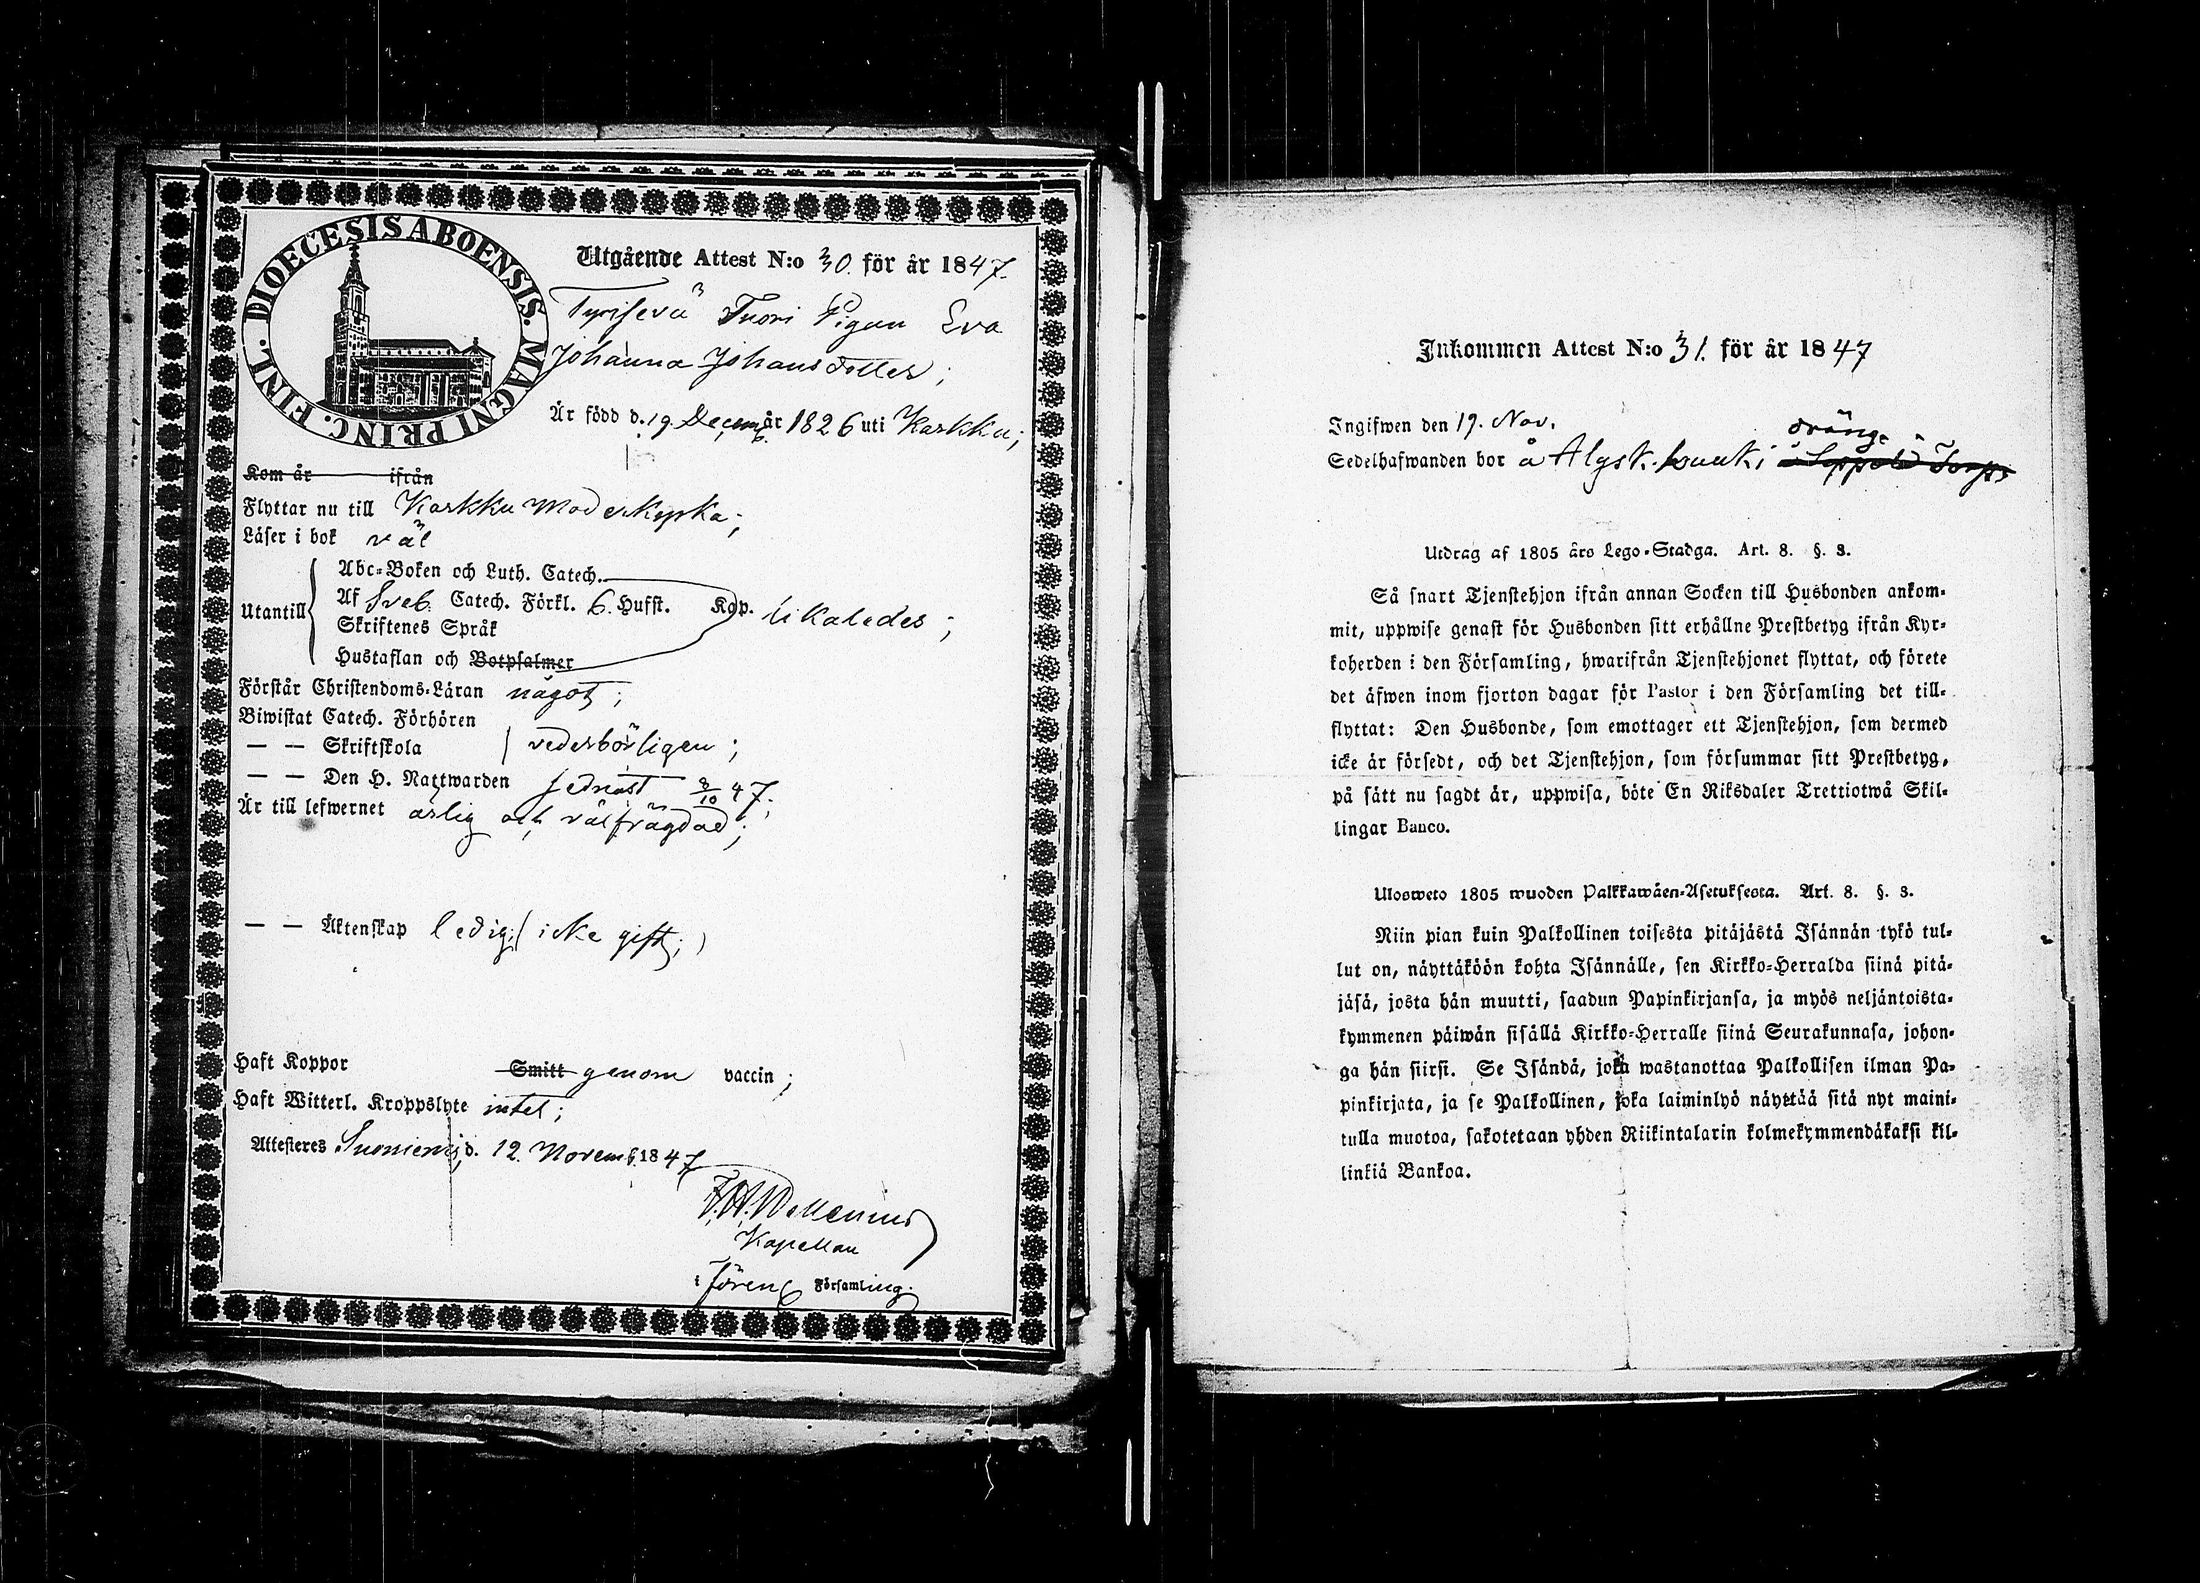 DIOECESIS ABOENSIS. MAGNI PRINC. FINL.
Utgående Attest N:o 30. för år 1847.
Tyrisevä Tuori Pigan Eva
Johanna Johansdotter;
Är född d. 19. Decemb. år 1826 uti Karkku;
Kom år ifrån
Flyttar nu till Karkku Moderkyrka;
Läser i bok väl
Abc-Boken och Luth. Catech.
Utantill Af Sveb. Catech. Förkl. 6. Hufst. Kap. likaledes;
Skriftenes Språk
Hustaflan och Botpsalmer
Förstår Christendoms-Läran något;
Biwistat Catech. Förhören
— — Skriftskola vederbörligen;
— — Den H. Nattwarden sednast 3/10 47;
Är till lefwernet ärlig och välfrägdad;
— — Äktenskap ledig; (icke gift;)
Haft Koppor Smitt genom vaccin;
Haft Witterl. Kroppslyte intet;
Attesteras Suoniemi, d. 12. Novemb. 1847
Kapellan
i förenb Församling.
Inkommen Attest N:o 31. för år 1847
Ingifwen den 19. Nov.
dräng.
Sedelhafwanden bor å
Utdrag af 1805 års Lego-Stadga. Art. 8. §. 3.
Så snart Tjenstehjon ifrån annan Socken till Husbonden ankom-
mit, uppwise genast för Husbonden sitt erhållne Prestbetyg ifrån Kyr-
koherden i den Församling, hwarifrån Tjenstehjonet flyttat, och förete
det äfwen inom fjorton dagar för Pastor i den Församling det till-
flyttat: Den Husbonde, som emottager ett Tjenstehjon, som dermed
icke är försedt, och det Tjenstehjon, som försummar sitt Prestbetyg,
på sätt nu sagdt är, uppwisa, böte En Riksdaler Trettiotwå Skil-
lingar Banco.
Ulosweto 1805 wuoden Palkkawäen-Asetuksesta. Art. 8. §. 3.
Niin pian kuin Palkollinen toisesta pitäjästä Isännän tykö tul-
lut on, näyttäköön kohta Isännälle, sen Kirkko-Herralda siinä pitä-
jäsä, josta hän muutti, saadun Papinkirjansa, ja myös neljäntoista-
kymmenen päiwän sisällä Kirkko-Herralle siinä Seurakunnasa, johon-
ga hän siirsi. Se Isändä, joka wastanottaa Palkollisen ilman Pa-
pinkirjata, ja se Palkollinen, joka laiminlyö näyttää sitä nyt maini-
tulla muotoa, sakotetaan yhden Riikintalarin kolmekymmendäkaksi kil-
linkiä Bankoa.